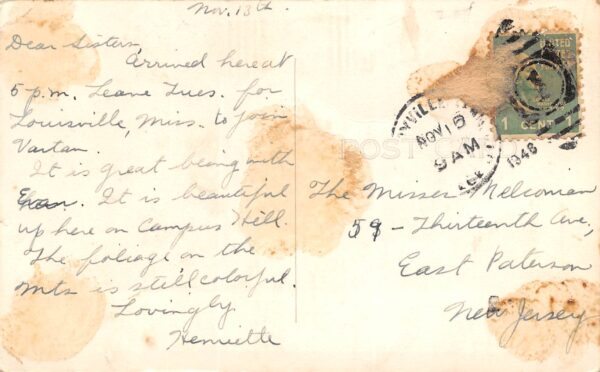 Nov. 13th.
Dear Sisters,
Arrived here at
5 p.m. Leave Tues. for
Louisville, Miss. to join
Vartan.
It is great being with
Eran. It is beautiful
up here on Campus Hill.
The foliage on the
Mts is still colorful.
Lovingly
Henriette
POST CARD
NOV 15
9 AM
1948
1 CENT 1
The Misses Melconian
59 - Thirteenth Ave,
East Paterson
New Jersey